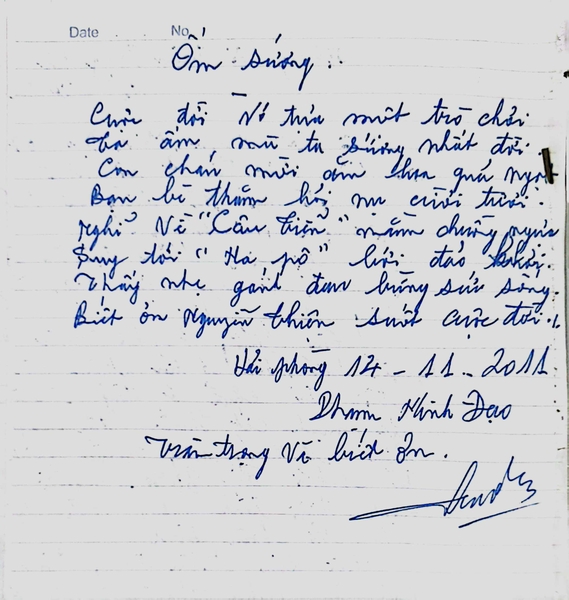 Date No
Ốm sướng..
Cuộc đời Nó tựa một trò chơi
ta ốm mà ta sướng nhất đời
Con cháu mời ăn hoa quả ngọt
Bạn bè thăm hỏi nụ cười tươi.
Nghĩ Về "Câu tiễn" nằm chuồng ngựa
Suy tới "Há pô" lưới đảo khơi.
Thấy nhẹ gánh đau bừng sức sống.
Biết ơn Nguyễn thiện suốt cuộc đời./.
Hải phòng 14-11-2011
Phạm Minh Đạo
Trân trọng Về biết ơn.